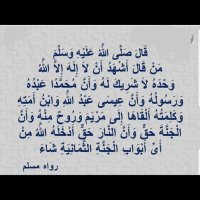 قَالَ صَلَّى اللَّهُ عَلَيْهِ وَسَلَّمَ
مَنْ قَالَ أَشْهَدُ أَنْ لاَ إِلَهَ إِلاَّ اللَّهُ
وَحْدَهُ لاَ شَرِيكَ لَهُ وَأَنَّ مُحَمَّدًا عَبْدُهُ
وَرَسُولُهُ وَأَنَّ عِيسَى عَبْدُ اللَّهِ وَابْنُ أَمَتِهِ
وَكَلِمَتُهُ أَلْقَاهَا إِلَى مَرْيَمَ وَرُوحٌ مِنْهُ وَأَنَّ
الْجَنَّةَ حَقٌّ وَأَنَّ النَّارَ حَقٌّ أَدْخَلَهُ اللَّهُ مِنْ
أَىِّ أَبْوَابِ الْجَنَّةِ الثَّمَانِيَةِ شَاءَ
رواه مسلم